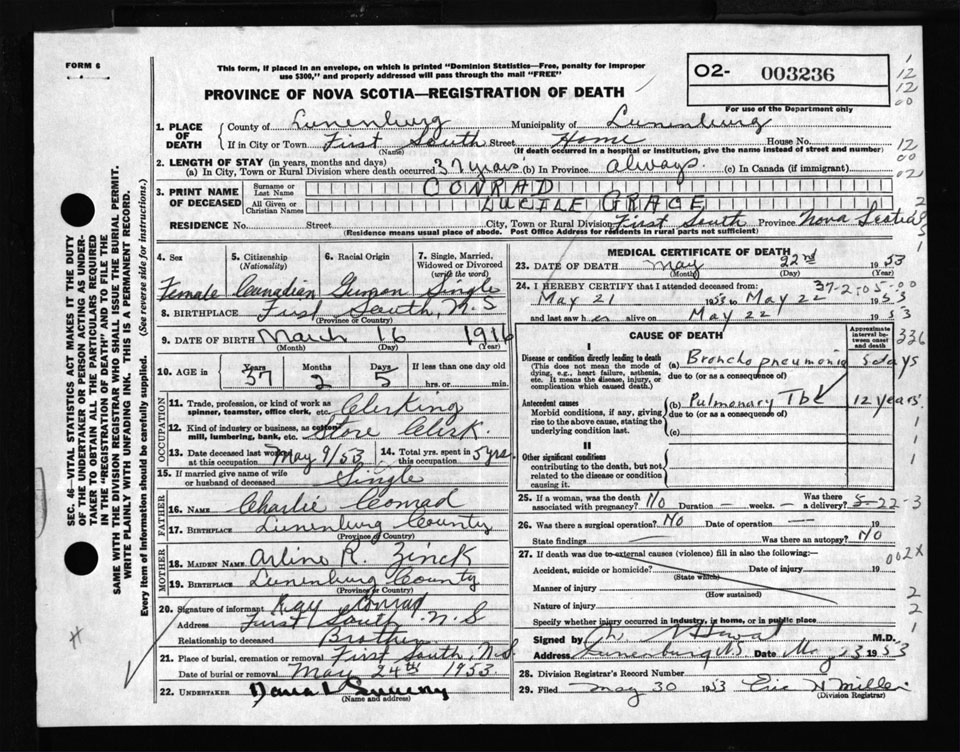 FORM 6
This form, if placed in an envelope, on which is printed "Dominion Statistics—Free, penalty for improper
use $300," and properly addressed will pass through the mail "FREE"
O2- 003236
For use of the Department only
PROVINCE OF NOVA SCOTIA—REGISTRATION OF DEATH
1. PLACE OF DEATH { County of Lunenburg Municipality of Lunenburg
If in City or Town First South Street Home House No.
(Name) (If death occurred in a hospital or institution, give the name instead of street and number)
2. LENGTH OF STAY (in years, months and days)
(a) In City, Town or Rural Division where death occurred 37 years (b) In Province always. (c) In Canada (if immigrant)
3. PRINT NAME OF DECEASED { Surname or Last Name CONRAD
All Given or Christian Names LUCILE GRACE
RESIDENCE No. Street City, Town or Rural Division First South Province Nova Scotia
(Residence means usual place of abode. Post Office Address for residents in rural parts not sufficient)
4. Sex Female
5. Citizenship (Nationality) Canadian
6. Racial Origin German
7. Single, Married, Widowed or Divorced (write the word) Single
8. BIRTHPLACE First South, N.S
(Province or Country)
9. DATE OF BIRTH March 16 1916
(Month) (Day) (Year)
10. AGE in Years 37 Months 2 Days 5 If less than one day old
hrs. or min.
OCCUPATION
11. Trade, profession, or kind of work as
spinner, teamster, office clerk, etc. Clerking
12. Kind of industry or business, as cotton
mill, lumbering, bank, etc. Store Clerk.
13. Date deceased last worked
at this occupation May 9/53
14. Total yrs. spent in
this occupation 5 yrs.
15. If married give name of wife
or husband of deceased Single
FATHER
16. Name Charlie Conrad
17. BIRTHPLACE Lunenburg County
(Province or Country)
MOTHER
18. MAIDEN NAME Arline R. Zinck
19. BIRTHPLACE Lunenburg County
(Province or Country)
20. Signature of informant Ray Conrad
Address First South N.S
Relationship to deceased Brother.
21. Place of burial, cremation or removal First South, N.S.
Date of burial or removal May 24th 1953.
22. UNDERTAKER
(Name and address)
MEDICAL CERTIFICATE OF DEATH
23. DATE OF DEATH May 22nd 1953
(Month) (Day) (Year)
37-2-05-00
24. I HEREBY CERTIFY that I attended deceased from:
May 21 1953 to May 22 1953
and last saw her alive on May 22 1953
CAUSE OF DEATH
Approximate interval between onset and death
I
Disease or condition directly leading to death
(This does not mean the mode of
dying, e.g., heart failure, asthenia,
etc. It means the disease, injury, or
complication which caused death.)
(a) Broncho pneumonia 5 days
due to (or as a consequence of)
Antecedent causes
Morbid conditions, if any, giving
rise to the above cause, stating the
underlying condition last.
(b) Pulmonary Tbc 12 years
due to (or as a consequence of)
(c)
II
Other significant conditions
contributing to the death, but not
related to the disease or condition
causing it.
25. If a woman, was the death
associated with pregnancy? NO Duration — weeks. — Was there a delivery? 5-22-3
26. Was there a surgical operation? NO Date of operation — 19
State findings — Was there an autopsy? NO
27. If death was due to external causes (violence) fill in also the following:— 002X
Accident, suicide or homicide? Date of injury 19
(State which)
Manner of injury
(How sustained)
Nature of injury
Specify whether injury occurred in industry, in home, or in public place
Signed by M.D.
Address Lunenburg N.S Date 1953
28. Division Registrar's Record Number
29. Filed May 30 1953 Eric H Miller
(Division Registrar)
SEC. 46—VITAL STATISTICS ACT MAKES IT THE DUTY
OF THE UNDERTAKER OR PERSON ACTING AS UNDER-
TAKER TO OBTAIN ALL THE PARTICULARS REQUIRED
IN THE "REGISTRATION OF DEATH" AND TO FILE THE
SAME WITH THE DIVISION REGISTRAR WHO SHALL ISSUE THE BURIAL PERMIT.
WRITE PLAINLY WITH UNFADING INK. THIS IS A PERMANENT RECORD.
Every item of information should be carefully supplied. (See reverse side for instructions.)
1
12
12
00
12
00
02
2
5
1
336
1
1
1
1
2
2
1